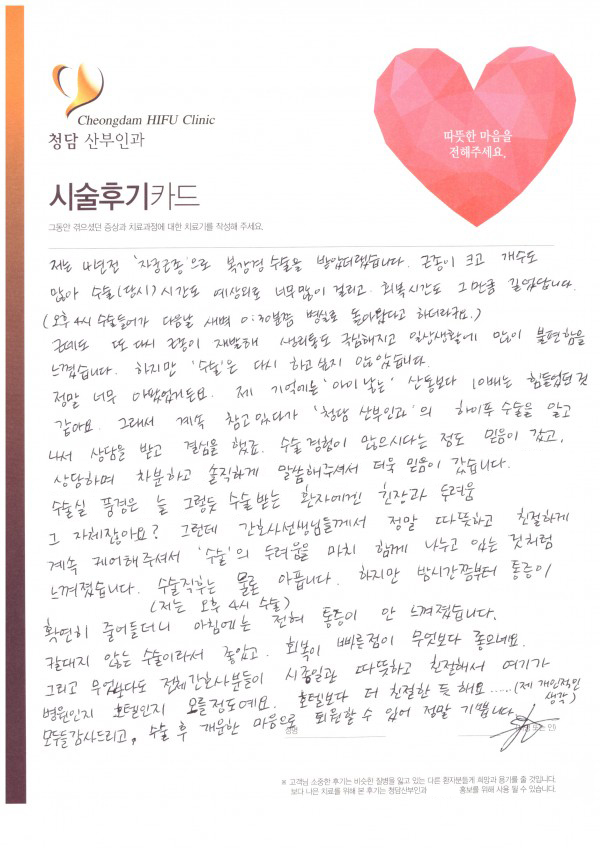 Cheongdam HIFU Clinic
청담 산부인과
따뜻한 마음을
전해주세요.
시술후기카드
그동안 겪으셨던 증상과 치료과정에 대한 치료기를 작성해 주세요.
저는 4년전 '자궁근종'으로 복강경 수술을 받았더랬습니다. 근종이 크고 개수도
많아 수술(당시)시간도 예상외로 너무많이 걸리고. 회복시간도 그만큼 길었답니다.
(오후 4시 수술들어가 다음날 새벽 0:30분쯤 병실로 돌아왔다고 하더라구요.)
근데도 또 다시 근종이 재발해 생리통도 극심해지고 일상생활에 많이 불편함을
느꼈습니다. 하지만 '수술'은 다시 하고 싶지 않았습니다.
정말 너무 아팠었거든요. 제 기억에는 '아이 낳는' 산통보다 10배는 힘들었던것
같아요. 그래서 계속 참고있다가 '청담 산부인과'의 하이푸 수술을 알고
나서 상담을 받고 결심을 했죠. 수술경험이 많으시다는 정도 믿음이 갔고,
상담하며 차분하고 솔직하게 말씀해주셔서 더욱 믿음이 갔습니다.
수술실 풍경은 늘 그렇듯 수술받는 환자에겐 긴장과 두려움
그 자체잖아요? 그런데 간호사선생님들께서 정말 따뜻하고 친절하게
계속 케어해주셔서 '수술'의 두려움을 마치 함께 나누고 있는 것처럼
느껴졌습니다. 수술직후는 물론 아픕니다. 하지만 밤시간쯤부터 통증이
(저는 오후 4시 수술)
확연히 줄어들더니 아침에는 전혀 통증이 안 느껴졌습니다.
칼대지 않는 수술이라서 좋았고. 회복이 빠른점이 무엇보다 좋으네요.
그리고 무엇보다도 전체간호사분들이 시종일관 따뜻하고 친절해서 여기가
병원인지 호텔인지 모를정도예요. 호텔보다 더 친절한 듯 해요..... (제 개인적인
생각)
모두들감사드리고, 수술 후 개운한 마음으로 퇴원할 수 있어 정말 기쁩니다.
성명
※ 고객님 소중한 후기는 비슷한 질병을 앓고 있는 다른 환자분들게 희망과 용기를 줄 것입니다.
보다 나은 치료를 위해 본 후기는 청담산부인과 홍보를 위해 사용 될 수 있습니다.